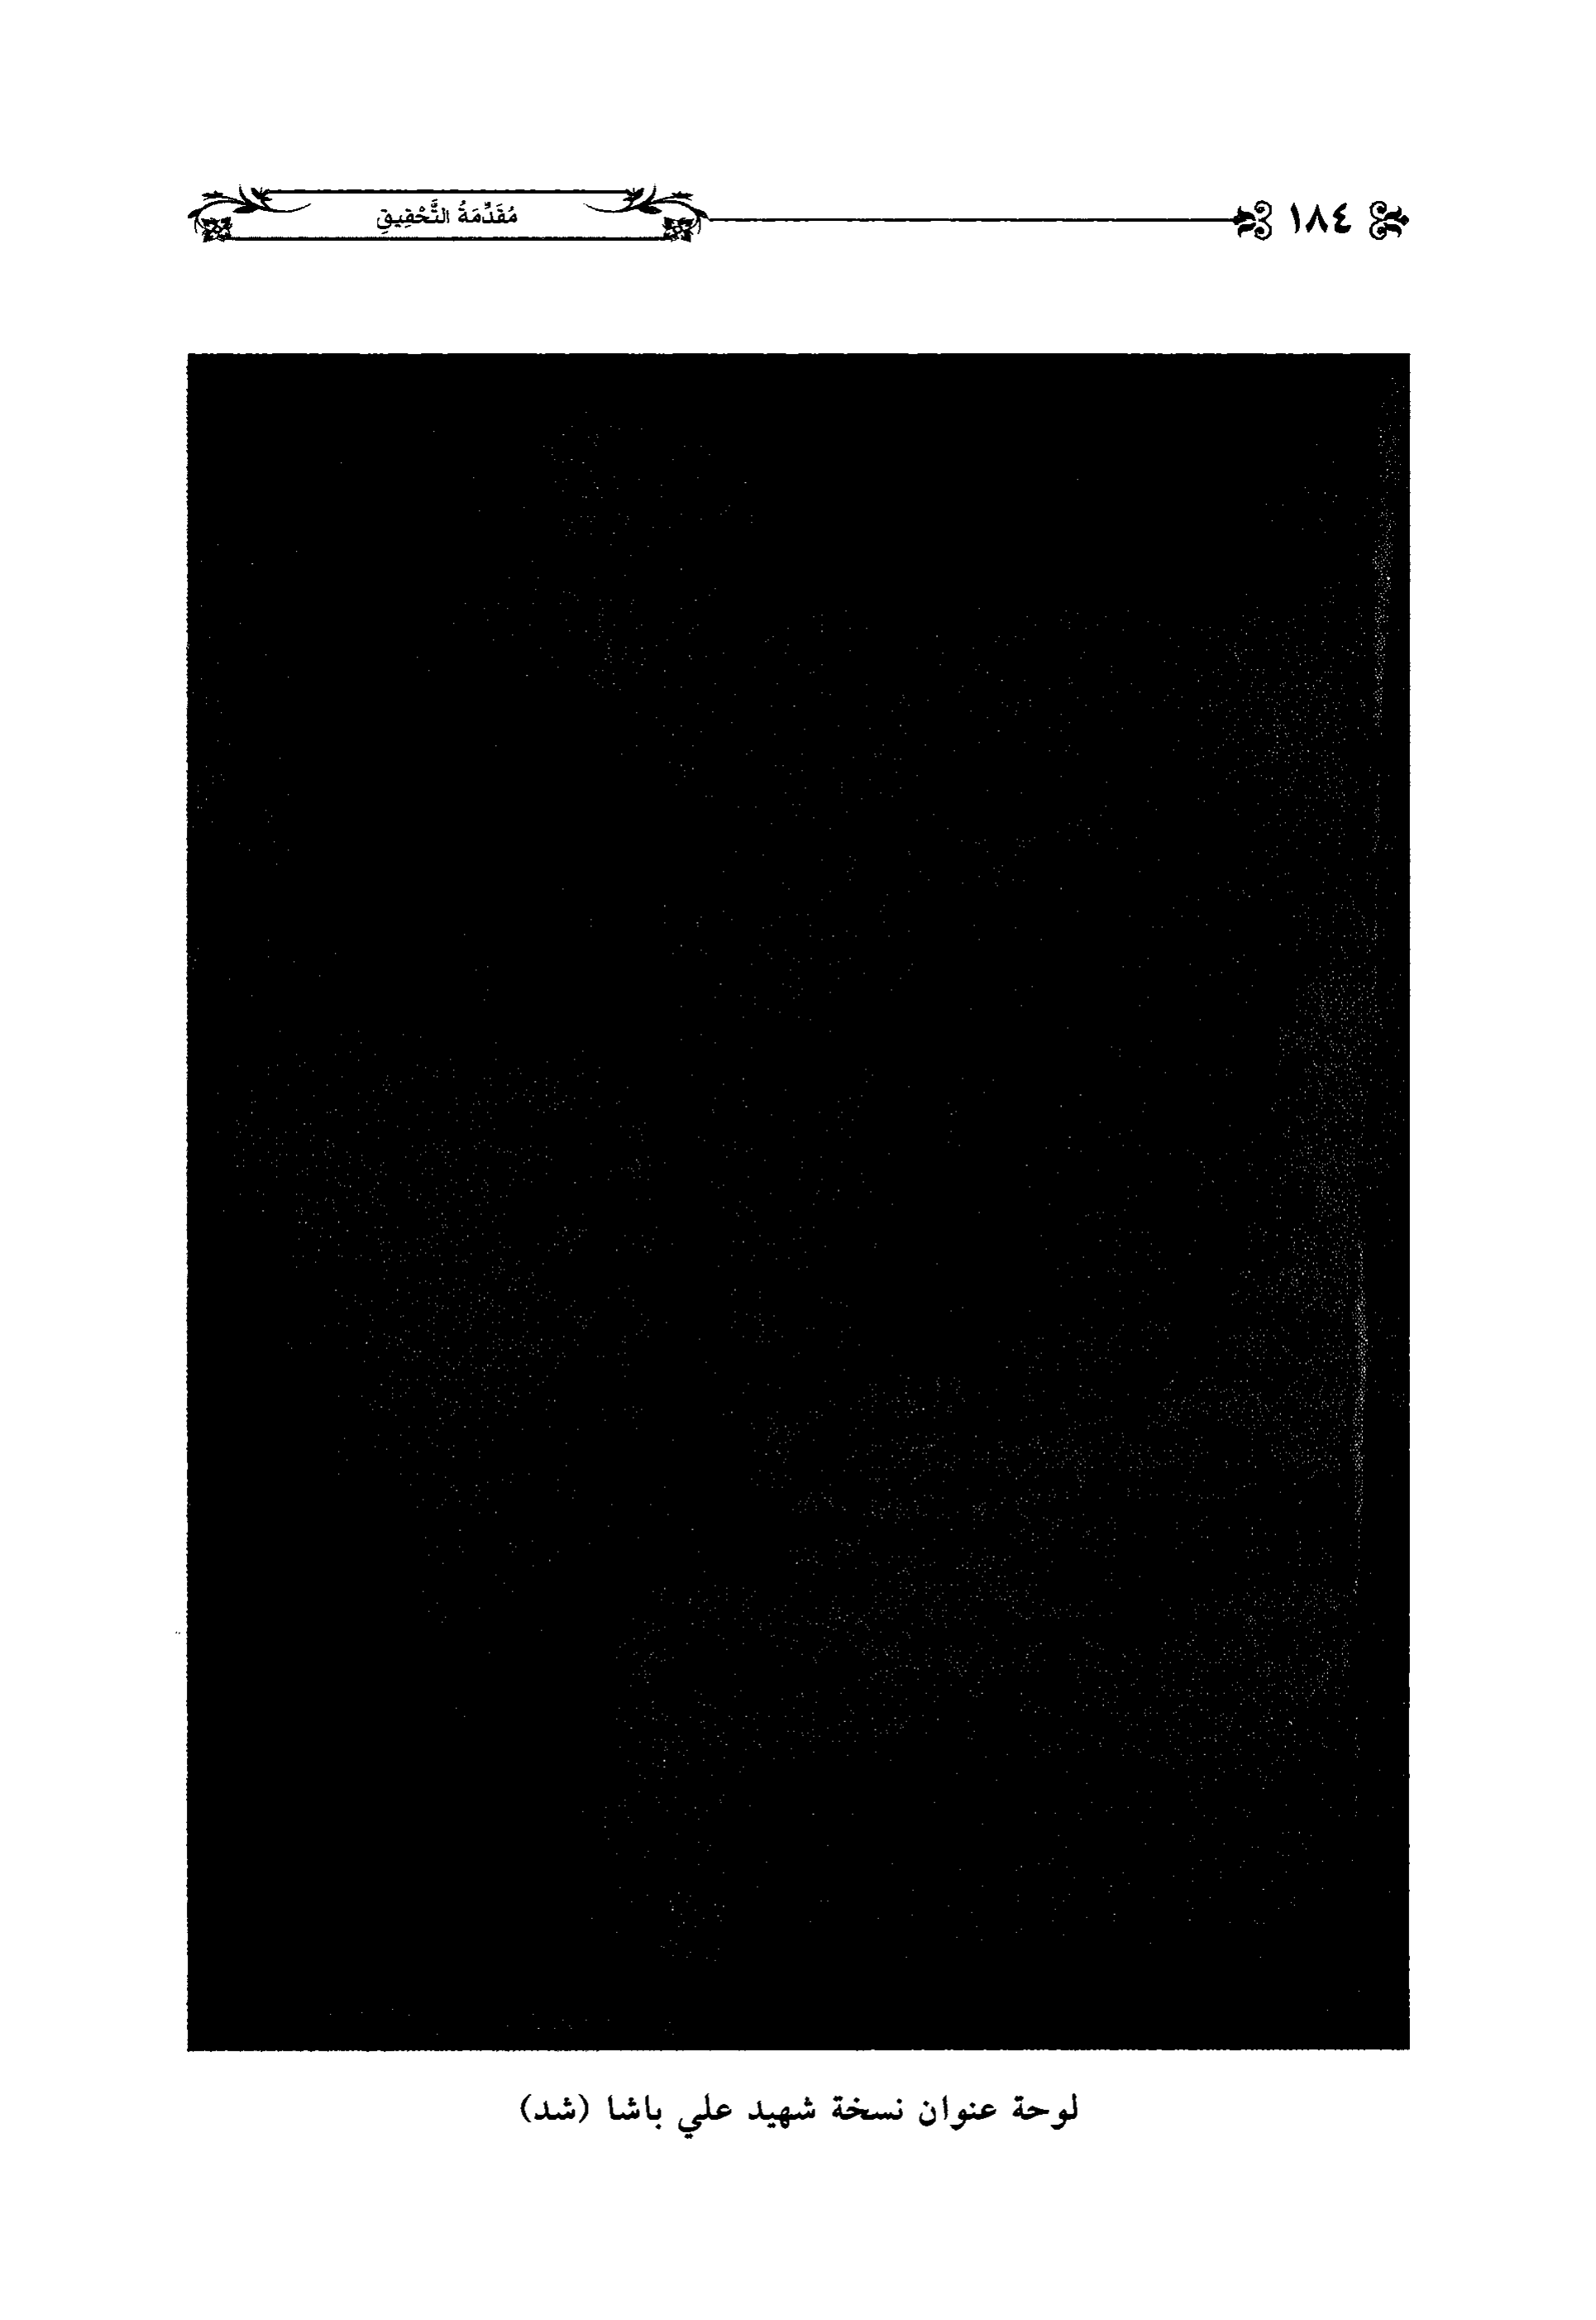 ١٨٤
مُقَدِّمَةُ التَّحْقِيقِ
لوحة عنوان نسخة شهيد علي باشا (شد)